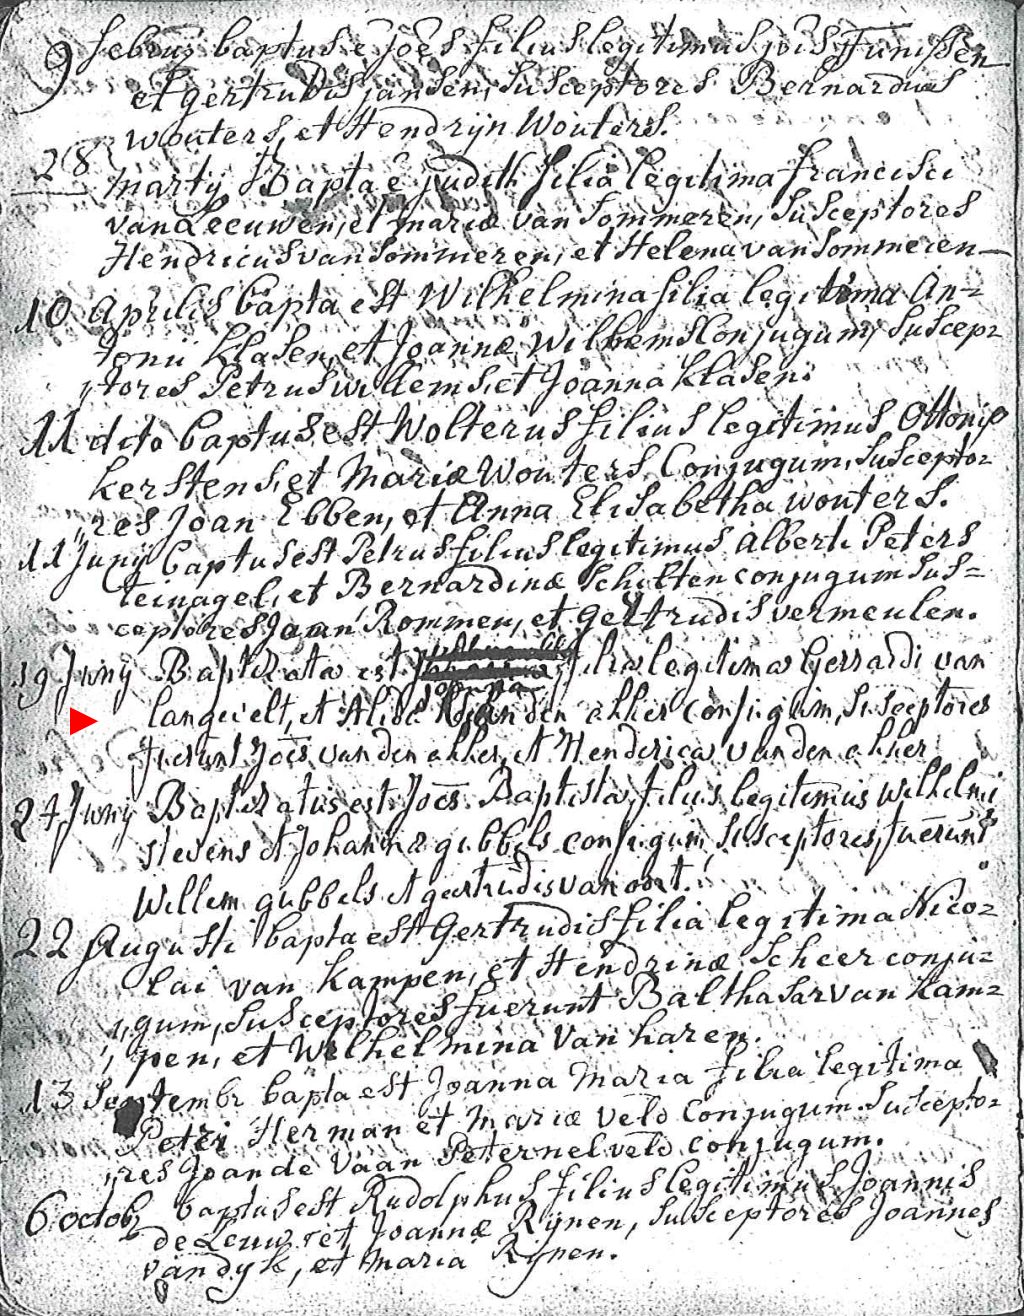 9 febrius baptus e Joes filius legitimus Jois Tunissen
et gertrudis jansen, susceptores Bernardus
wouters, et Hendrijn Wouters.
28 martij Bapta e judith filia legitima francisci
van Leeuwen, et mariæ van sommeren, susceptores
Hendricus van sommeren, et Helena van sommeren
10 aprilis bapta est Wilhelmina filia legitima An=
tonii Klasen, et Joannæ Willems Conjugum, suscep=
tores Petrus willems, et Joanna Klasen.
11 dito baptus est Wolterus filius legitimus Ottonis
Kerstens, et Mariæ Wouters Conjugum, suscepto=
res Joan Ebben, et Anna Elisabetha wouters.
11 Junij baptus est Petrus filius legitimus alberti Peters
teinagel, et Bernardinæ Scholten conjugum sus=
ceptores Jaan Rommen, et gertrudis vermeulen.
19 Juny Baptizata est filia legitima gerrardi van
langevelt, et Alide van den akker conjugum, susceptores
fuerunt Joes van den akker, et Henderica van den akker
24 Juny Baptizatus est Joes Baptista filius legitimus Wilhelmi
stevens et Johannæ gubbels conjugum, susceptores fuerunt
Willem gubbels et gertrudis van oort.
22 Augusti bapta est Gertrudis filia legitima Nico=
lai van Kampen, et Hendrinæ Scheer conju=
gum, susceptores fuerunt Balthasar van Kam=
pen, et Wilhelmina van haren.
13 Septembr bapta est Joanna Maria filia legitima
Petri Herman et Mariæ Veld Conjugum. suscepto=
res Joan de Vaan Peternel veld conjugum.
6 octobr baptus est Rudolphus filius legitimus Joannis
de Leuw, et Joannæ Rijnen, susceptores Joannes
van dyk, et Maria Rijnen.